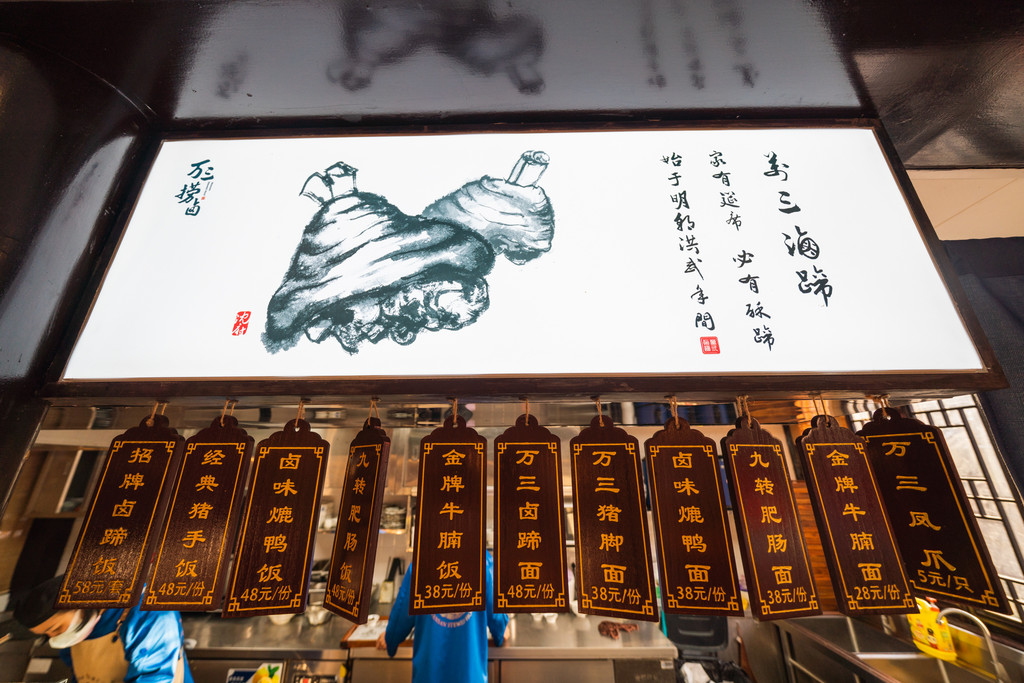 万三
捞卤
萬三滷蹄
家有筵席 必有酥蹄
始于明朝洪武年間
招牌卤蹄饭
58元/套
经典猪手饭
48元/份
卤味爊鸭饭
48元/份
九转肥肠饭
48元/份
金牌牛腩饭
38元/份
万三卤蹄面
48元/份
万三猪脚面
38元/份
卤味爊鸭面
38元/份
九转肥肠面
38元/份
金牌牛腩面
28元/份
万三凤爪
5元/只